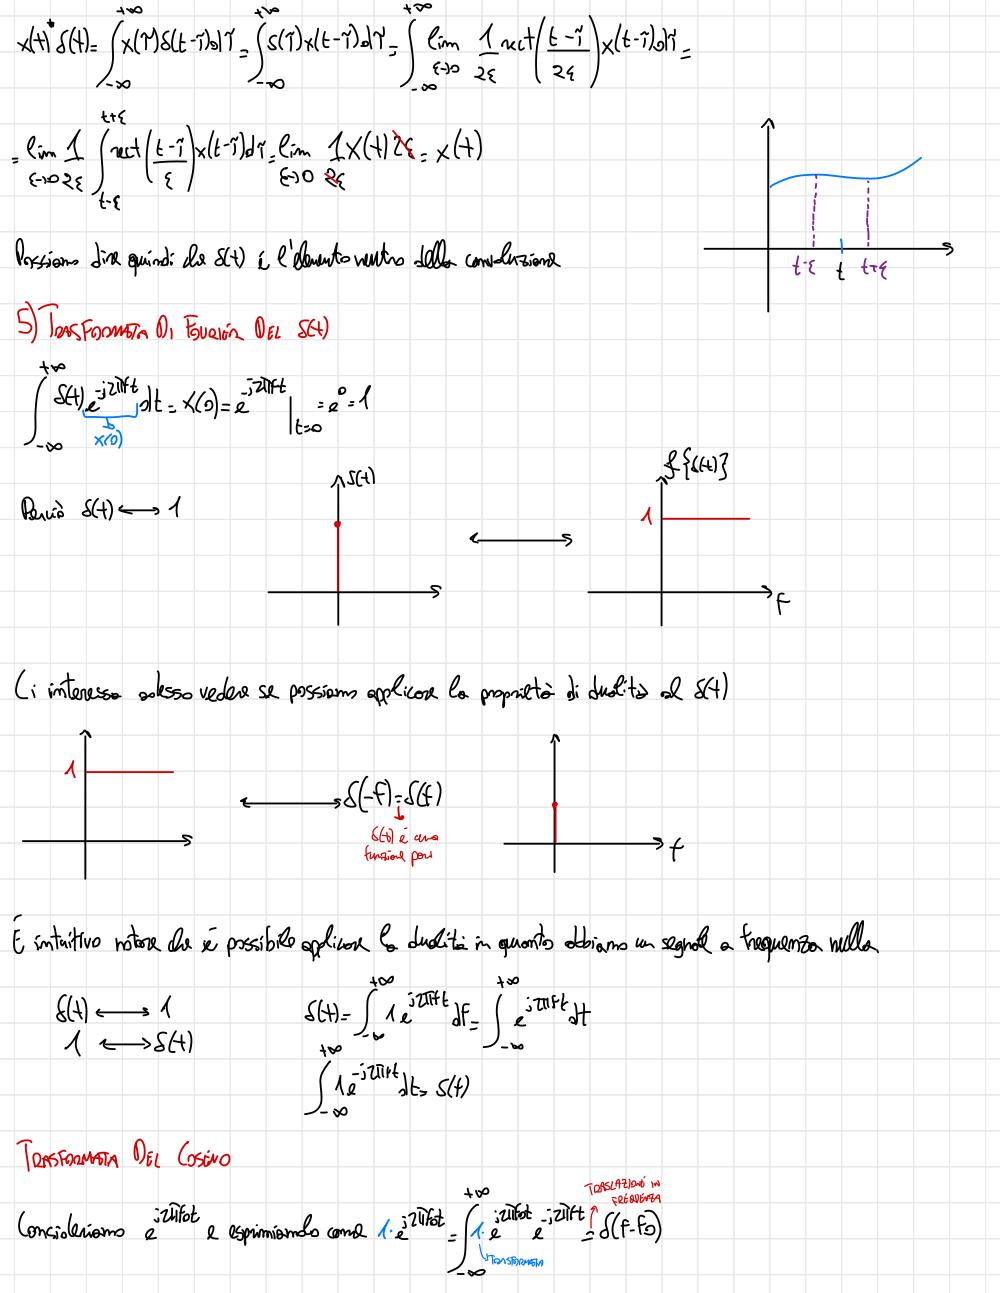 x(t)*δ(t)= ∫_{-∞}^{+∞} x(τ)δ(t-τ)dτ = ∫_{-∞}^{+∞} δ(τ)x(t-τ)dτ = ∫_{-∞}^{+∞} lim_{ε→0} 1/2ε rect((t-τ)/2ε) x(t-τ)dτ =
= lim_{ε→0} 1/2ε ∫_{t-ε}^{t+ε} rect((t-τ)/ε) x(t-τ)dτ = lim_{ε→0} 1/2ε x(t) 2ε = x(t)
t-ε t t+ε
Possiamo dire quindi che δ(t) è l'elemento neutro della convoluzione
5) TRASFORMATA DI FOURIER DEL δ(t)
∫_{-∞}^{+∞} δ(t) e^{-j2πft} dt = x(0) = e^{-j2πft} |_{t=0} = e^0 = 1
x(0)
δ(t)
f{δ(t)}
Perciò δ(t) ⟷ 1
1
f
Ci interessa adesso vedere se possiamo applicare la proprietà di dualità al δ(t)
1
⟷ δ(-f) = δ(f)
δ(t) è una
funzione pari
f
È intuitivo notare che è possibile applicare la dualità in quanto abbiamo un segnale a frequenza nulla
δ(t) ⟷ 1
1 ⟷ δ(t)
δ(t) = ∫_{-∞}^{+∞} 1 e^{j2πft} df = ∫_{-∞}^{+∞} e^{j2πft} dt
∫_{-∞}^{+∞} 1 e^{-j2πft} dt = δ(f)
TRASFORMATA DEL COSENO
TRASLAZIONE IN
FREQUENZA
Consideriamo e^{j2πf0t} e esprimiamolo come 1·e^{j2πf0t} = ∫_{-∞}^{+∞} 1·e^{j2πf0t} e^{-j2πft} = δ(f-f0)
TRASFORMATA